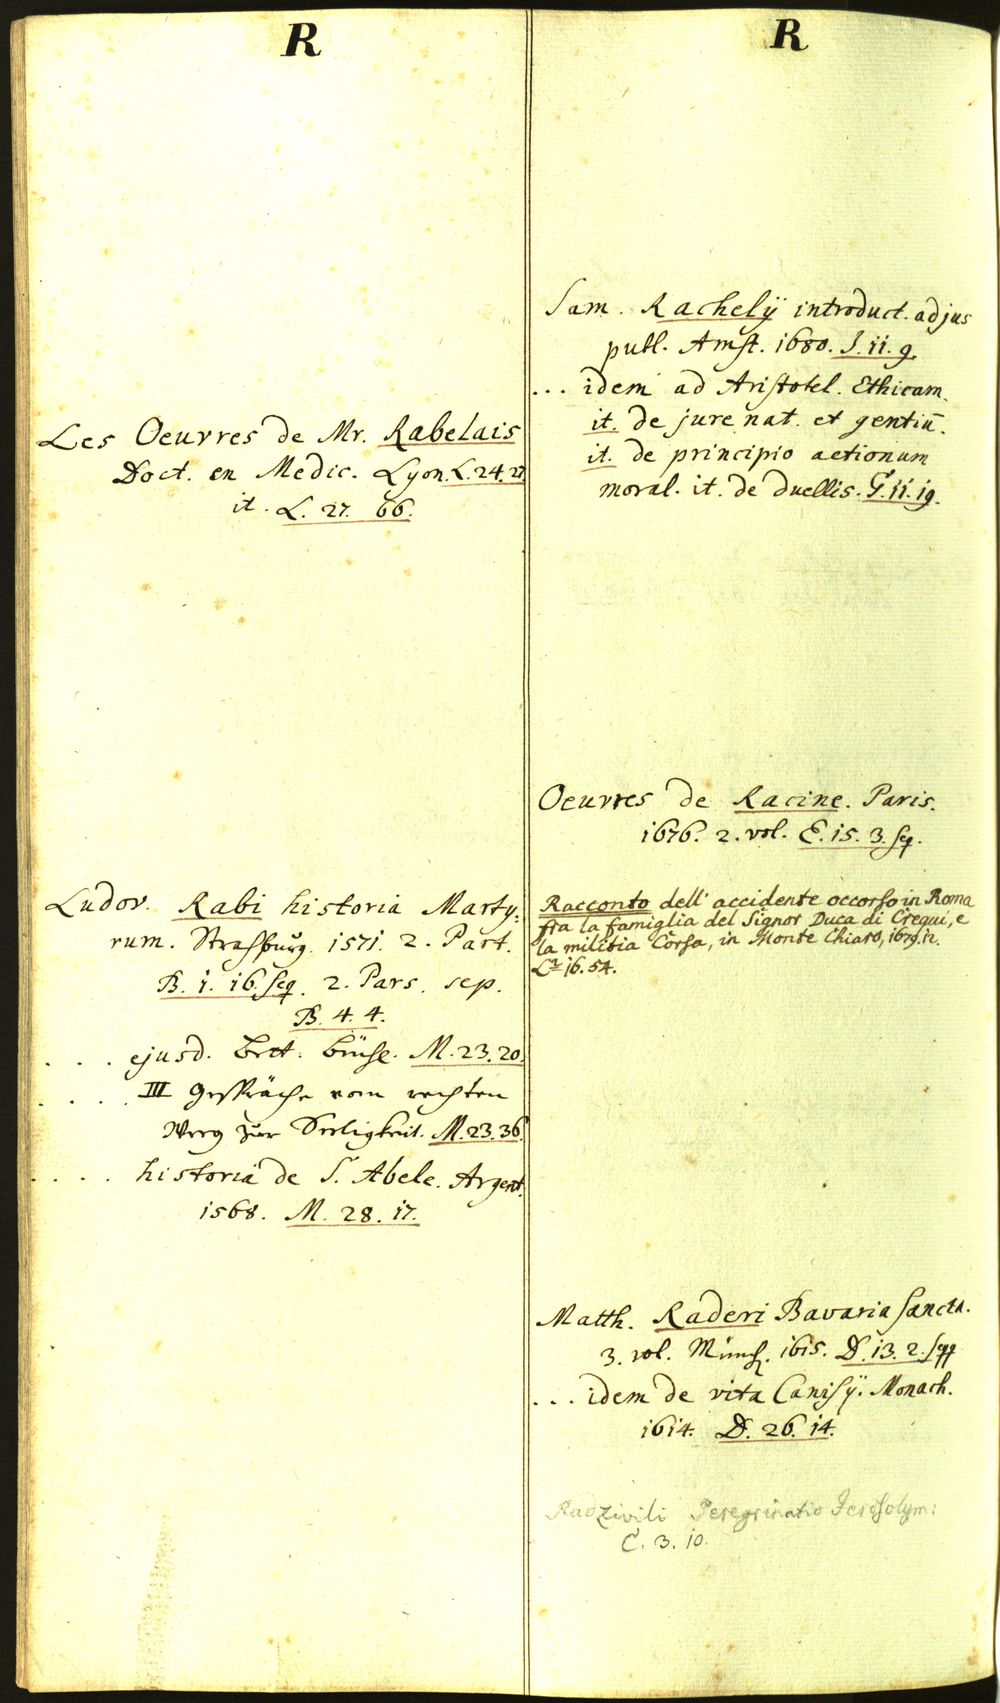 R
Les Oeuvres de Mr. Rabelais
Doct. en Medic. Lyon. L. 24. 27.
it. L. 27. 66.
Ludov. Rabi historia Marty-
rum. Strasburg. 1571. 2. Part.
B. 1. 16. seq. 2. Pars. sep.
B. 4. 4.
. . . ejusd. Bett. büchl. M. 23. 20.
. . . . III Gespräche vom rechten
Weeg zur Seeligkeit. M. 23. 36.
. . . . historia de S. Abele. Argent.
1568. M. 28. 17.
R
Sam. Rachelÿ introduct. ad jus
publ. Amst. 1680. J. 11. 9.
... idem ad Aristotel. Ethicam.
it. de jure nat. et gentiū.
it. de principio actionum
moral. it. de duellis. G. 11. 19.
Oeuvres de Racine. Paris.
1676. 2. vol. E. 15. 3. seq.
Racconto dell' accidente occorso in Roma
fra la famiglia del Signor Duca di Crequi, e
la militia Corsa, in Monte Chiaro, 1679. 12.
16. 54.
Matth. Raderi Bavaria Sancta.
3. vol. Münch. 1615. D. 13. 2. seqq
... idem de vita Canisÿ. Monach.
1614. D. 26. 14.
Radzivili Peregrinatio Jerosolym:
C. 3. 10.